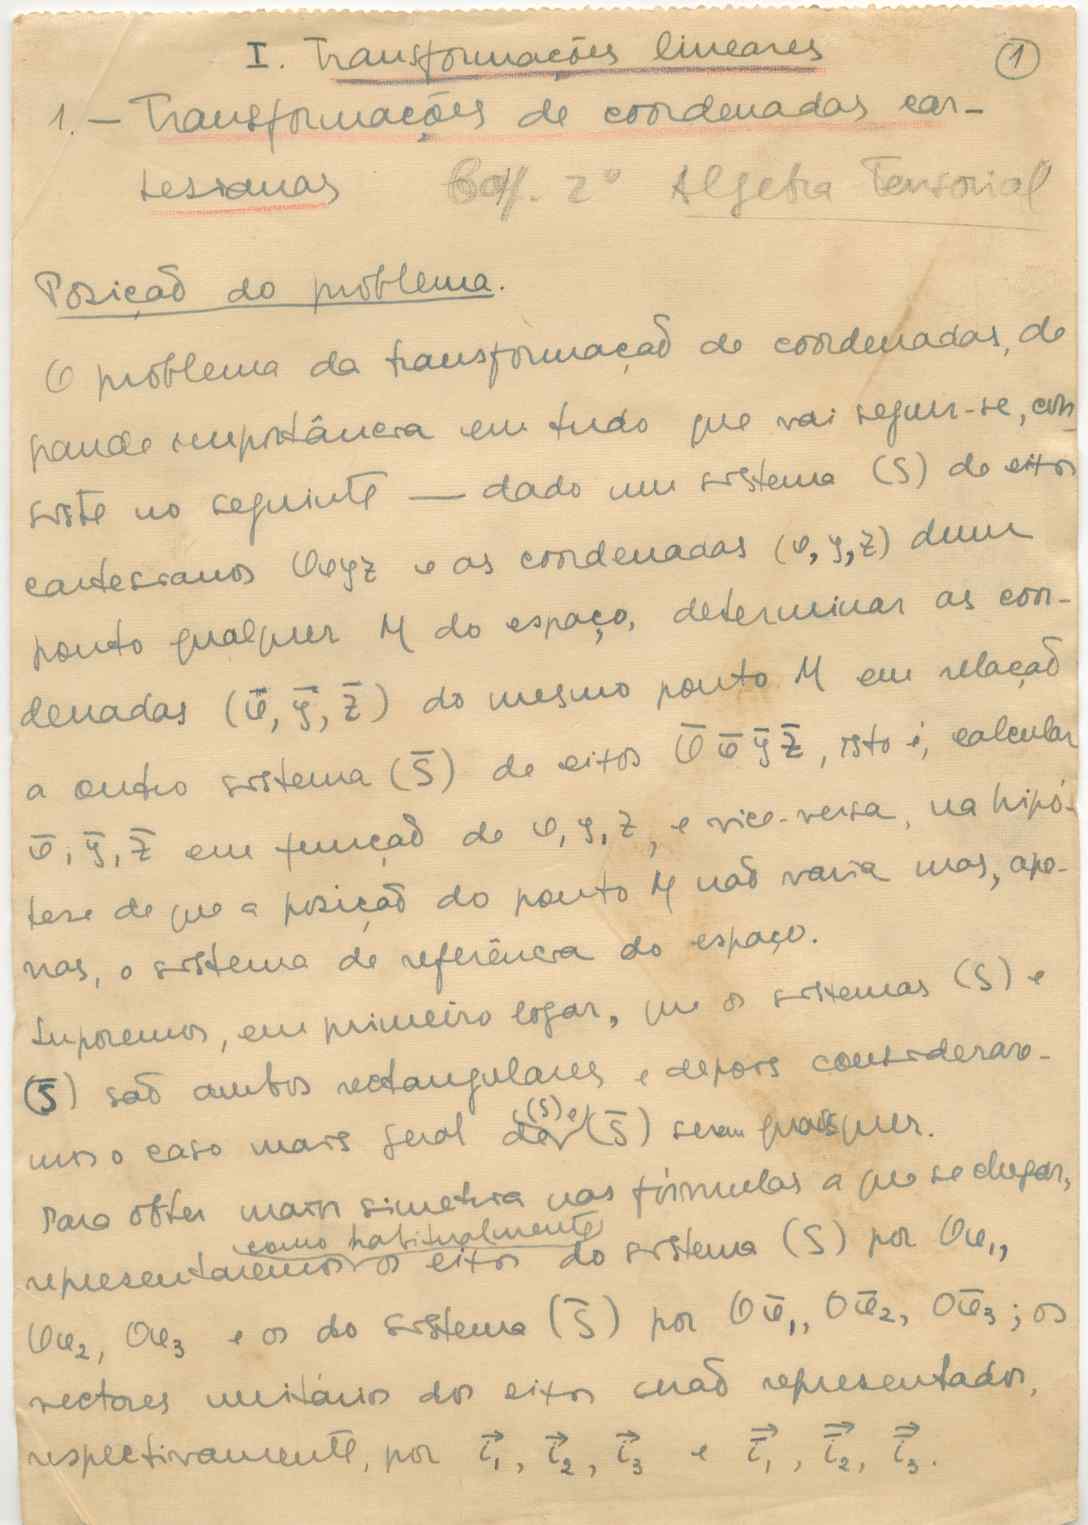 I. Transformações lineares
1
1. — Transformações de coordenadas car-
tesianas Cap. 2º Algebra Tensorial
Posição do problema.
O problema da transformação de coordenadas, de
grande importância em tudo que vai seguir-se, con
siste no seguinte — dado um sistema (S) de eixos
cartesianos Oxyz e as coordenadas (x, y, z) dum
ponto qualquer M do espaço, determinar as coor-
denadas (x̄, ȳ, z̄) do mesmo ponto M em relação
a outro sistema (S̄) de eixos Ō x̄ ȳ z̄, isto é, calcular
x̄, ȳ, z̄ em função de x, y, z, e vice-versa, na hipó-
tese de que a posição do ponto M não varia mas, ape-
nas, o sistema de referência do espaço.
Suporemos, em primeiro logar, que os sistemas (S) e
(S̄) são ambos rectangulares e depois considerare-
mos o caso mais geral de (S) e (S̄) serem quaisquer.
Para obter maior simetria nas fórmulas a que se chegar,
como habitualmente
representaremos os eixos do sistema (S) por Ox₁,
Ox₂, Ox₃ e os do sistema (S̄) por Ox̄₁, Ox̄₂, Ox̄₃; os
vectores unitários dos eixos serão representados,
respectivamente, por i⃗₁, i⃗₂, i⃗₃ e i̅⃗₁, i̅⃗₂, i̅⃗₃.